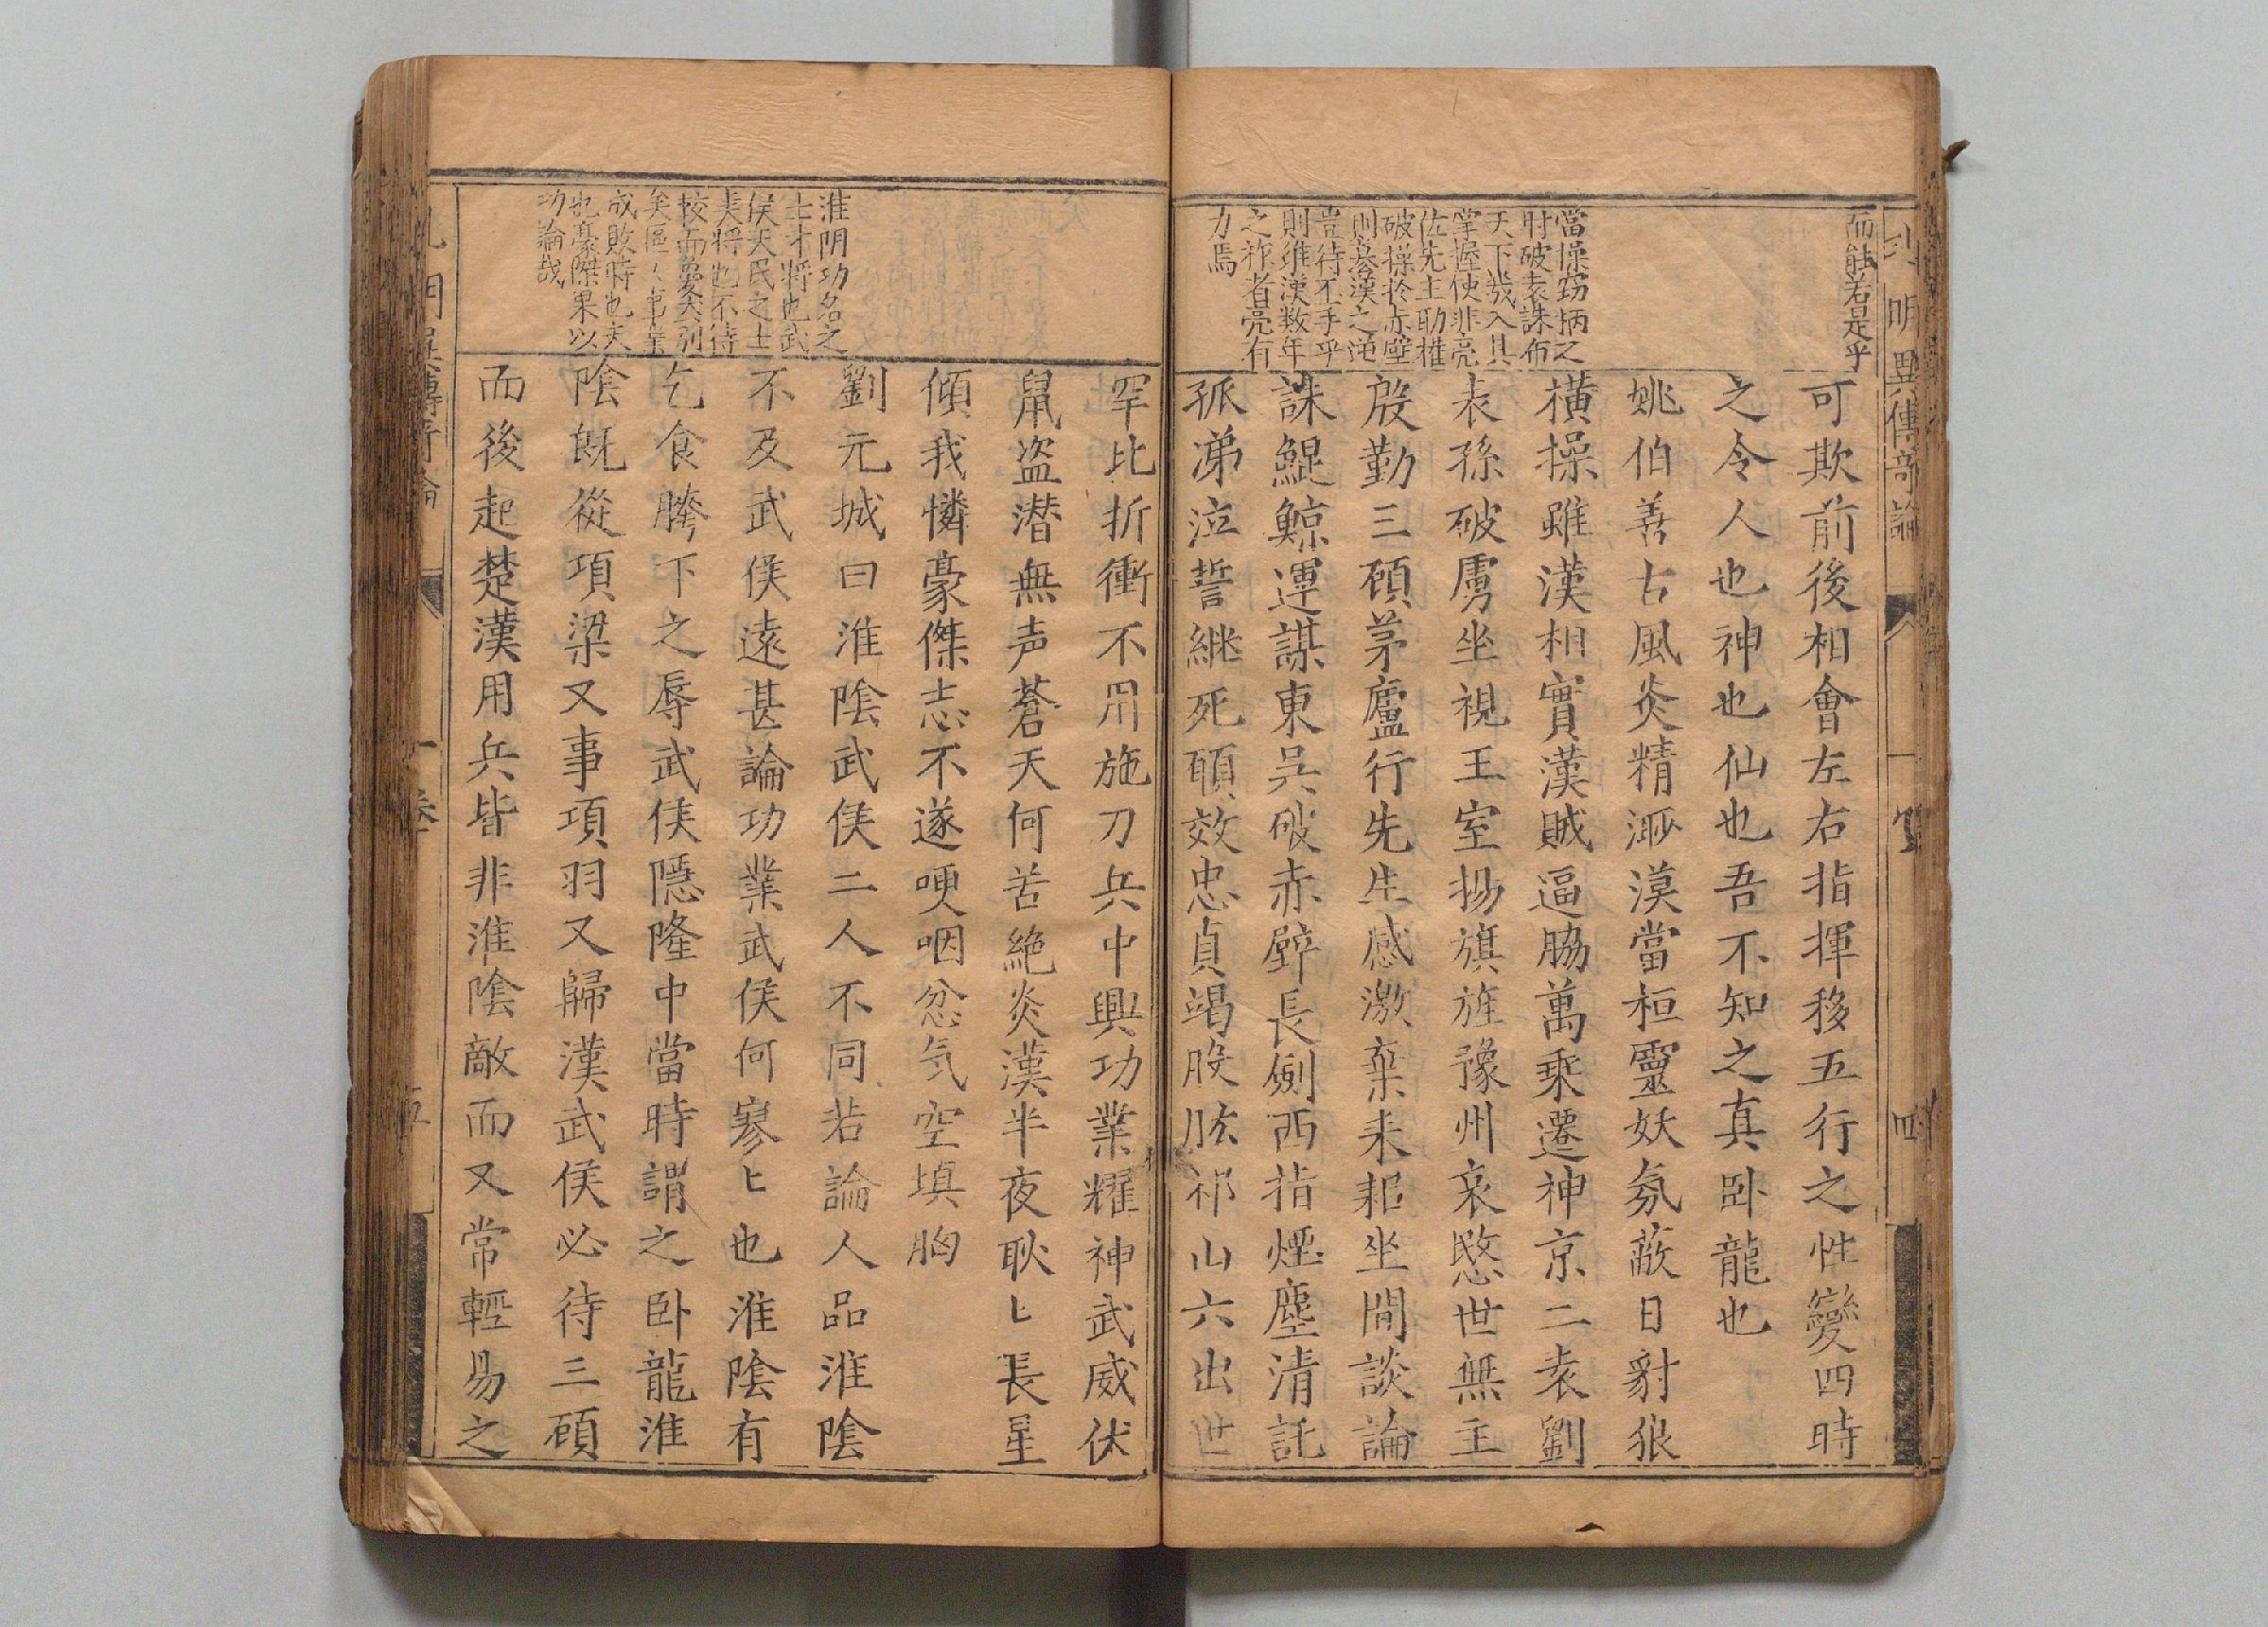 而能若是乎
當操竊柄之
时破袁誅布
天下幾入其
掌握使非亮
佐先主助權
破操於赤壁
则篡漢之逆
豈待丕手乎
則維漢数年
之祚者亮有
力焉
可欺前後相會左右指揮移五行之性變四時
之令人也神也仙也吾不知之真卧龍也
姚伯善古風炎精渺漠當桓靈妖氛蔽日豺狼
橫操雖漢相實漢賊逼脇萬乗遷神京二袁劉
表孫破虜坐視王室揚旗旌豫州哀愍世無主
殷勤三顧茅廬行先生感激棄耒耜坐間談論
誅鯤鯨運謀東吳破赤壁長劍西指煙塵清託
孤涕泣誓継死頤效忠貞竭股肱祁山六出世
淮阴功名之
士才將也武
侯天民之士
大將也不待
校而優劣别
矣區人事業
成敗時也天
也豪傑果以
功論哉
罕比折衝不用施刀兵中興功業耀神武威伏
鼠盗潜無声蒼天何苦絶炎漢半夜耿〻長星
傾我憐豪傑志不遂哽咽忿气空填胸
劉元城曰淮陰武侯二人不同若論人品淮陰
不及武侯遠甚論功業武侯何寥〻也淮陰有
乞食胯下之辱武侯隱隆中當時謂之卧龍淮
陰既從項梁又事項羽又歸漢武侯必待三顧
而後起楚漢用兵皆非淮陰敵而又常輕易之